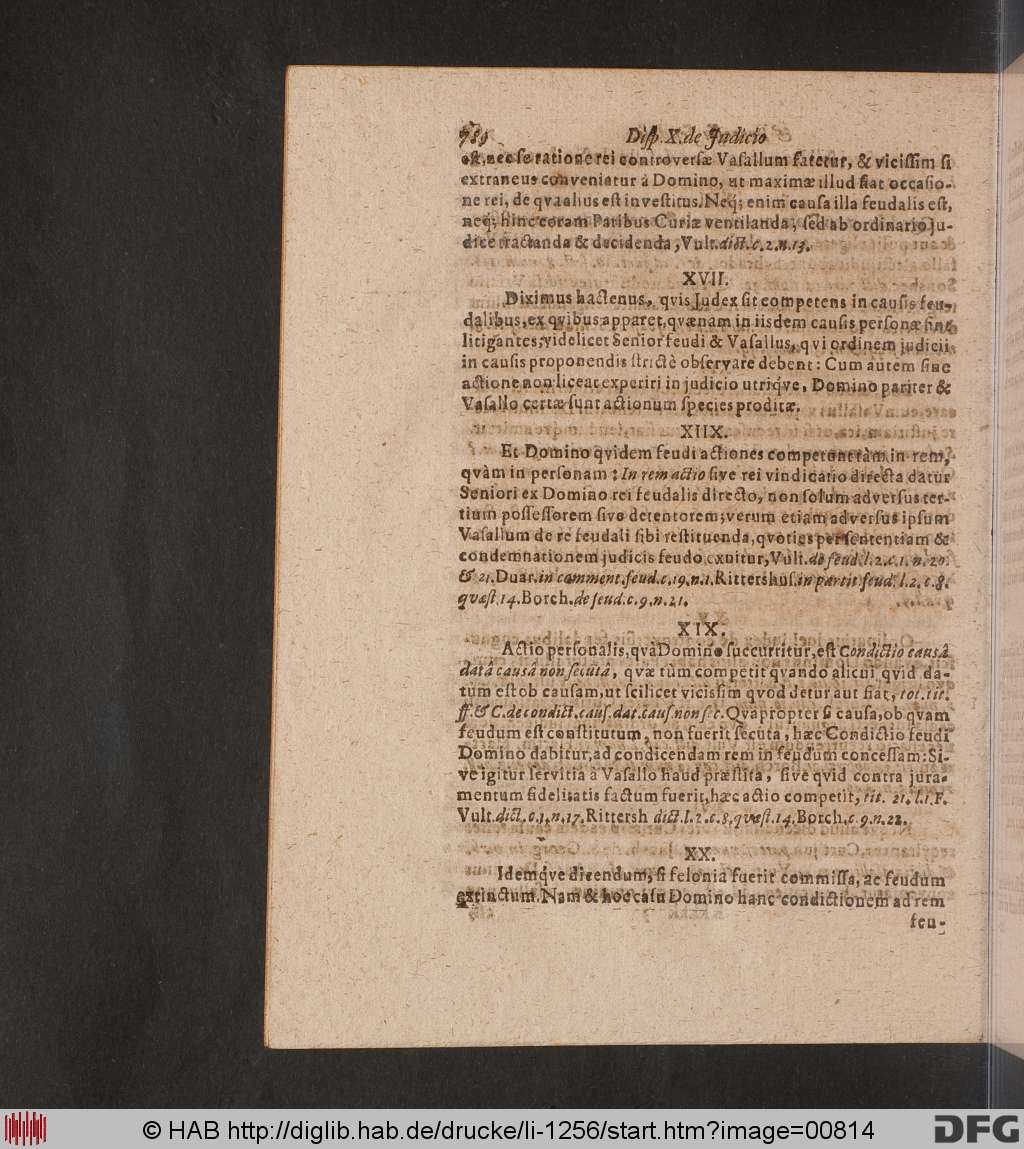 789 Disp. X. de Judicio
est, nec se ratione rei controversæ Vasallum fatetur, & vicissim si
extraneus conveniatur à Domino, ut maximæ illud fiat occasio-
ne rei, de qva alius est investitus. Neq; enim causa illa feudalis est,
neq; hinc coram Paribus Curiæ ventilanda, sed ab ordinario ju-
dice tractanda & decidenda, Vult. dict. c. 2. n. 13.
XVII.
Diximus hactenus, qvis Judex sit competens in causis feu-
dalibus, ex qvibus apparet, qvænam in iisdem causis personæ sint
litigantes; videlicet Senior feudi & Vasallus, qvi ordinem judicii
in causis proponendis strictè observare debent: Cum autem sine
actione non liceat experiri in judicio utriqve, Domino pariter &
Vasallo certæ sunt actionum species proditæ.
XIIX.
Et Domino qvidem feudi actiones competunt tàm in rem,
qvàm in personam: In rem actio sive rei vindicatio directa datur
Seniori ex Domino rei feudalis directo, non solum adversus ter-
tium possessorem sive detentorem; verum etiam adversus ipsum
Vasallum de re feudali sibi restituenda, qvoties per sententiam &
condemnationem judicis feudo exuitur, Vult. de feud. l. 2. c. 1. n. 20.
& 21. Duar. in comment. feud. c. 19. n. 1. Rittershus. in partit feud. l. 2. c. 8.
qvæst. 14. Borch. de feud. c. 9. n. 21.
XIX.
Actio personalis, qvâ Domino succurritur, est Condictio causâ
datâ causâ non secutâ, qvæ tùm competit qvando alicui qvid da-
tum est ob causam, ut scilicet vicissim qvod detur aut fiat, tot. tit.
ff. & C. de condict. caus. dat. caus. non sec. Qvapropter si causa, ob qvam
feudum est constitutum, non fuerit secuta, hæc Condictio feudi
Domino dabitur, ad condicendam rem in feudum concessam: Si-
ve igitur servitia à Vasallo haud præstita, sive qvid contra jura-
mentum fidelitatis factum fuerit, hæc actio competit, tit. 21. l. 1. F.
Vult. dict. c. 1. n. 17. Rittersh dict. l. 2. c. 8. qvæst. 14. Borch. c. 9. n. 22.
XX.
Idemqve dicendum, si felonia fuerit commissa, ac feudum
extinctum. Nam & hoc casu Domino hanc condictionem ad rem
feu-
© HAB http://diglib.hab.de/drucke/li-1256/start.htm?image=00814
DFG